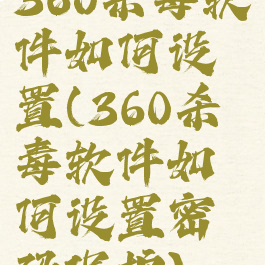 360杀毒软
件如何设
置(360杀
毒软件如
何设置密